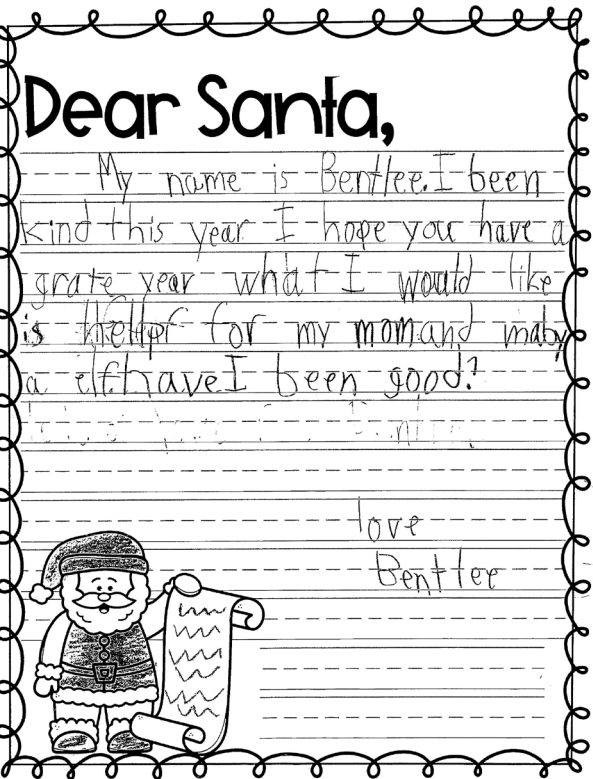 Dear Santa,
My name is Bentlee. I been
kind this year I hope you have a
grate year what I would like
is for my mom and maby
a elf have I been good?
love
Bentlee